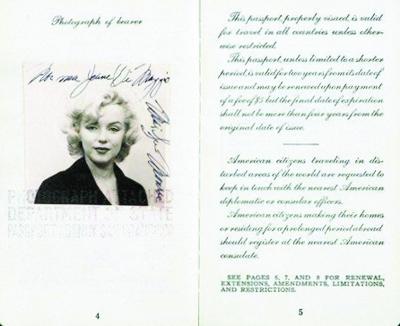 Photograph of bearer
Norma Jeane Di Maggio
PHOTOGRAPH ATTACHED
DEPARTMENT OF STATE
4
This passport, properly visaed, is valid
for travel in all countries unless other-
wise restricted.
This passport, unless limited to a shorter
period, is valid for two years from its date of
issue and may be renewed upon payment
of a fee of $5 but the final date of expiration
shall not be more than four years from the
original date of issue.
American citizens traveling in dis-
turbed areas of the world are requested to
keep in touch with the nearest American
diplomatic or consular officers.
American citizens making their homes
or residing for a prolonged period abroad
should register at the nearest American
consulate.
SEE PAGES 6, 7, AND 8 FOR RENEWAL,
EXTENSIONS, AMENDMENTS, LIMITATIONS,
AND RESTRICTIONS.
5